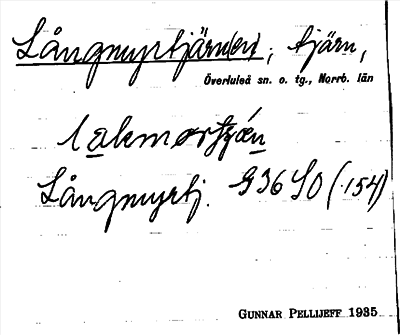 Långmyrtjärn(en), tjärn,
Överluleå sn. o. tg., Norrb. län
Långmyrtj. G36 SO (154)
GUNNAR PELLIJEFF 1935